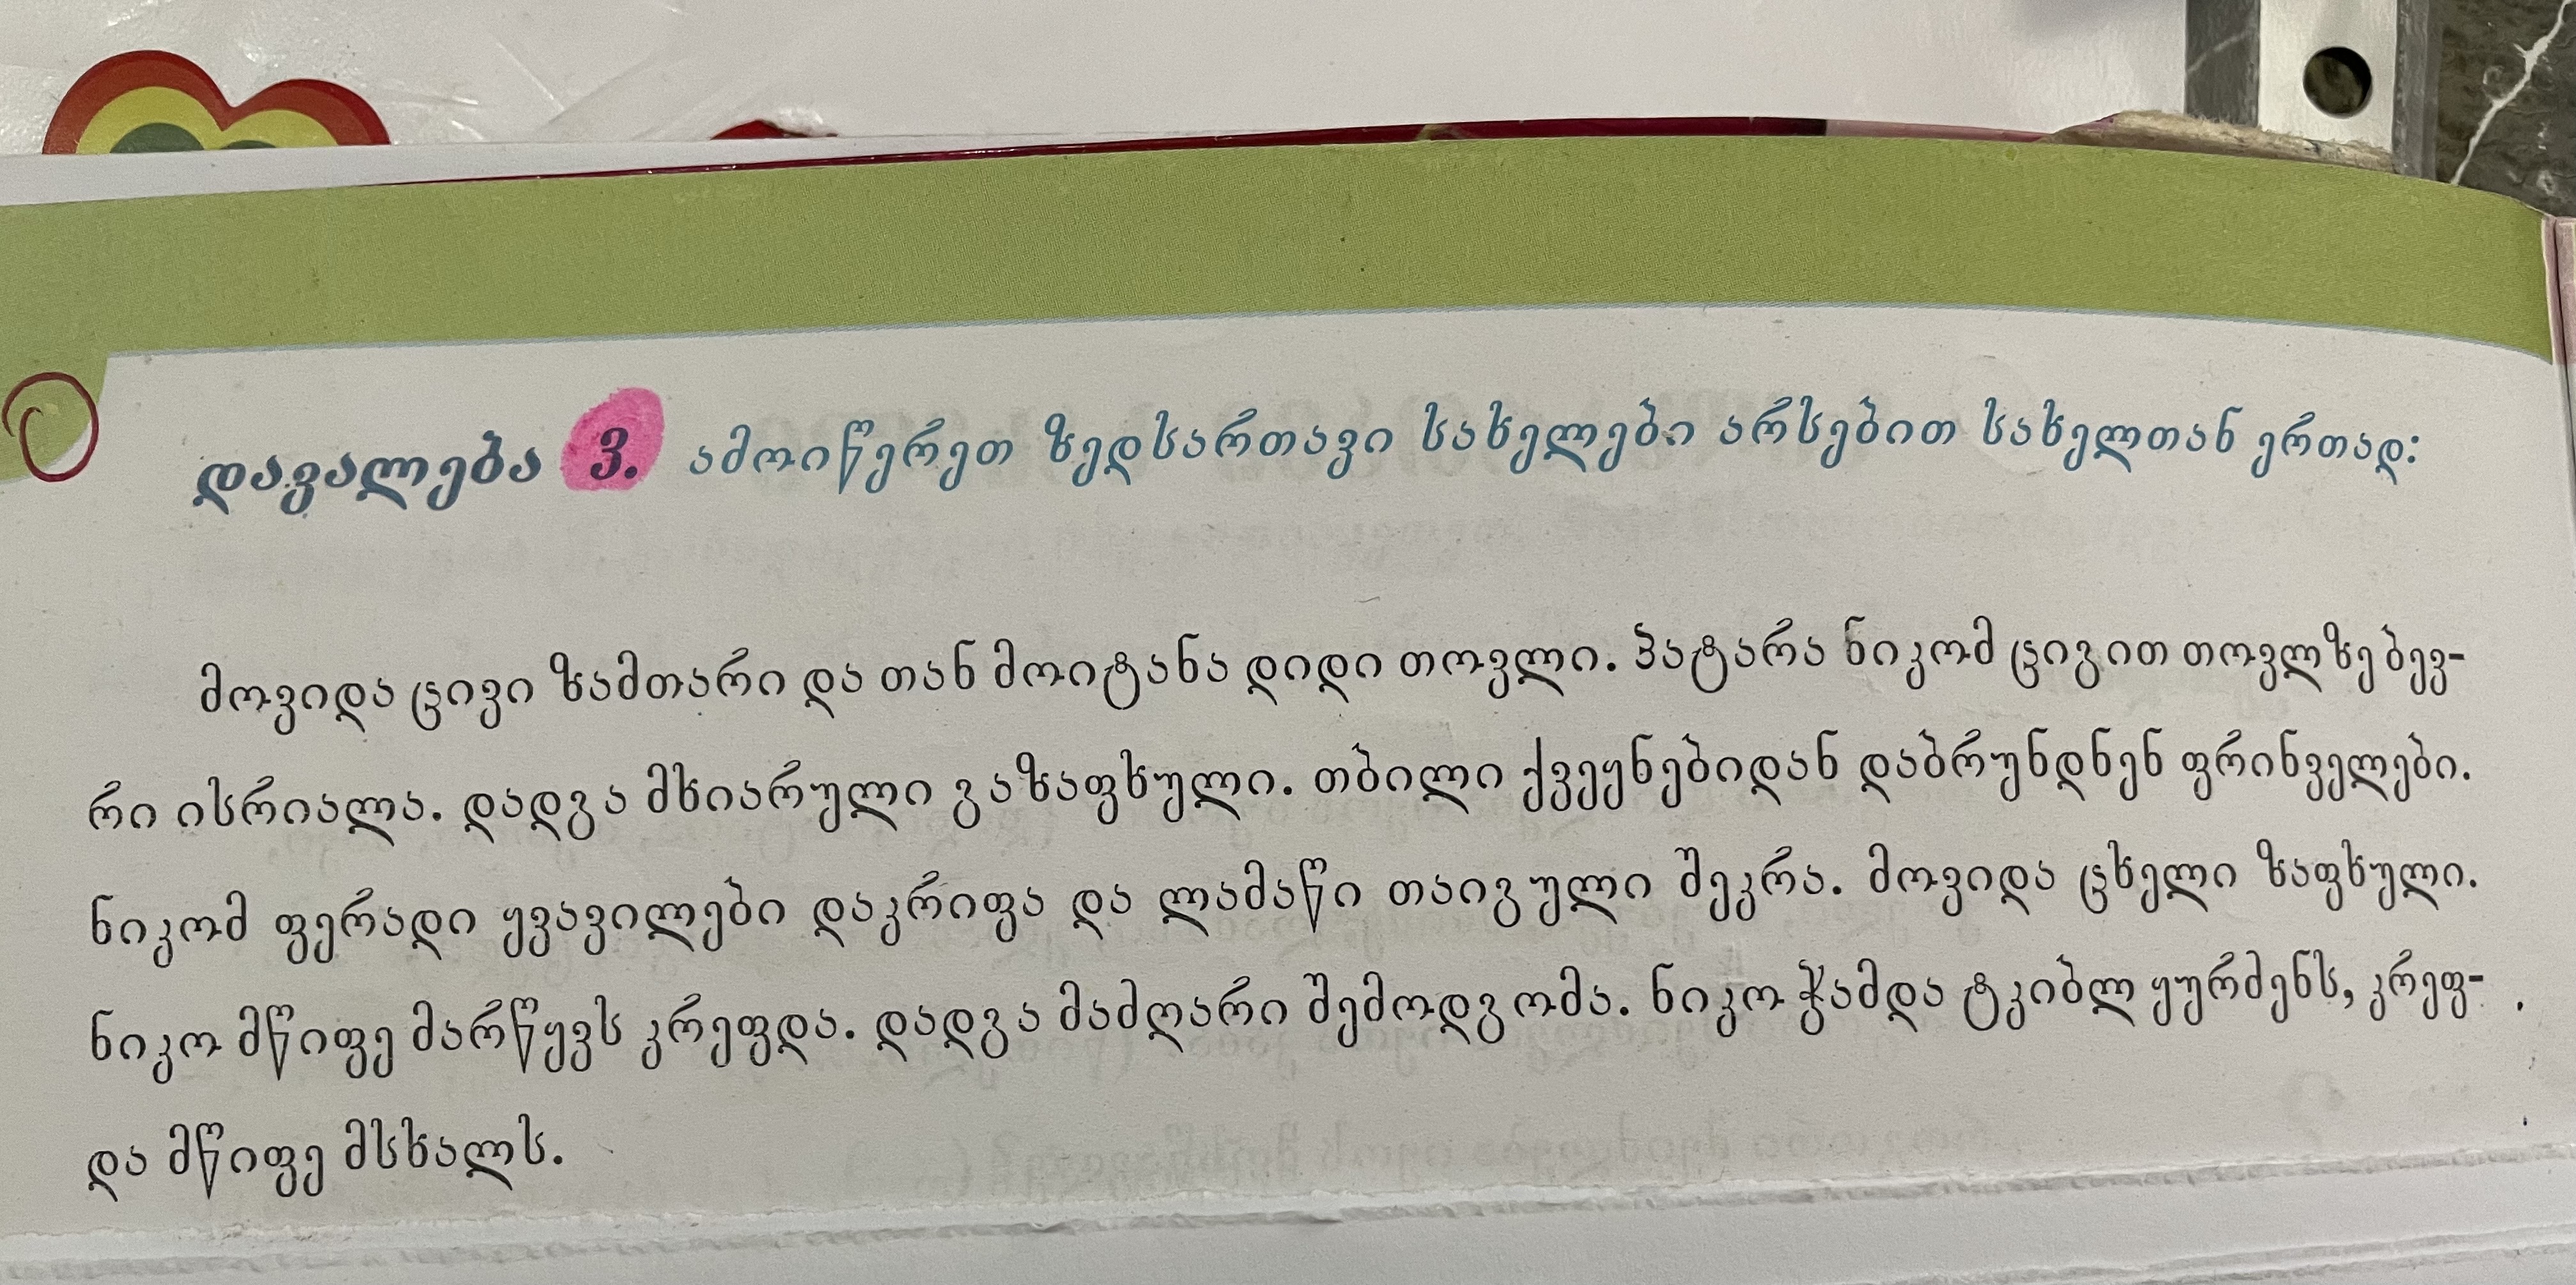 დავალება 3. ამოიწერეთ ზედსართავი სახელები არსებით სახელთან ერთად:
მოვიდა ცივი ზამთარი და თან მოიტანა დიდი თოვლი. პატარა ნიკომ ციგით თოვლზე ბევ-
რი ისრიალა. დადგა მხიარული გაზაფხული. თბილი ქვეყნებიდან დაბრუნდნენ ფრინველები.
ნიკომ ფერადი ყვავილები დაკრიფა და ლამაწი თაიგული შეკრა. მოვიდა ცხელი ზაფხული.
ნიკო მწიფე მარწყვს კრეფდა. დადგა მამღარი შემოდგომა. ნიკო ჭამდა ტკიბლ ყურძენს, კრეფ-
და მწიფე მსხალს.